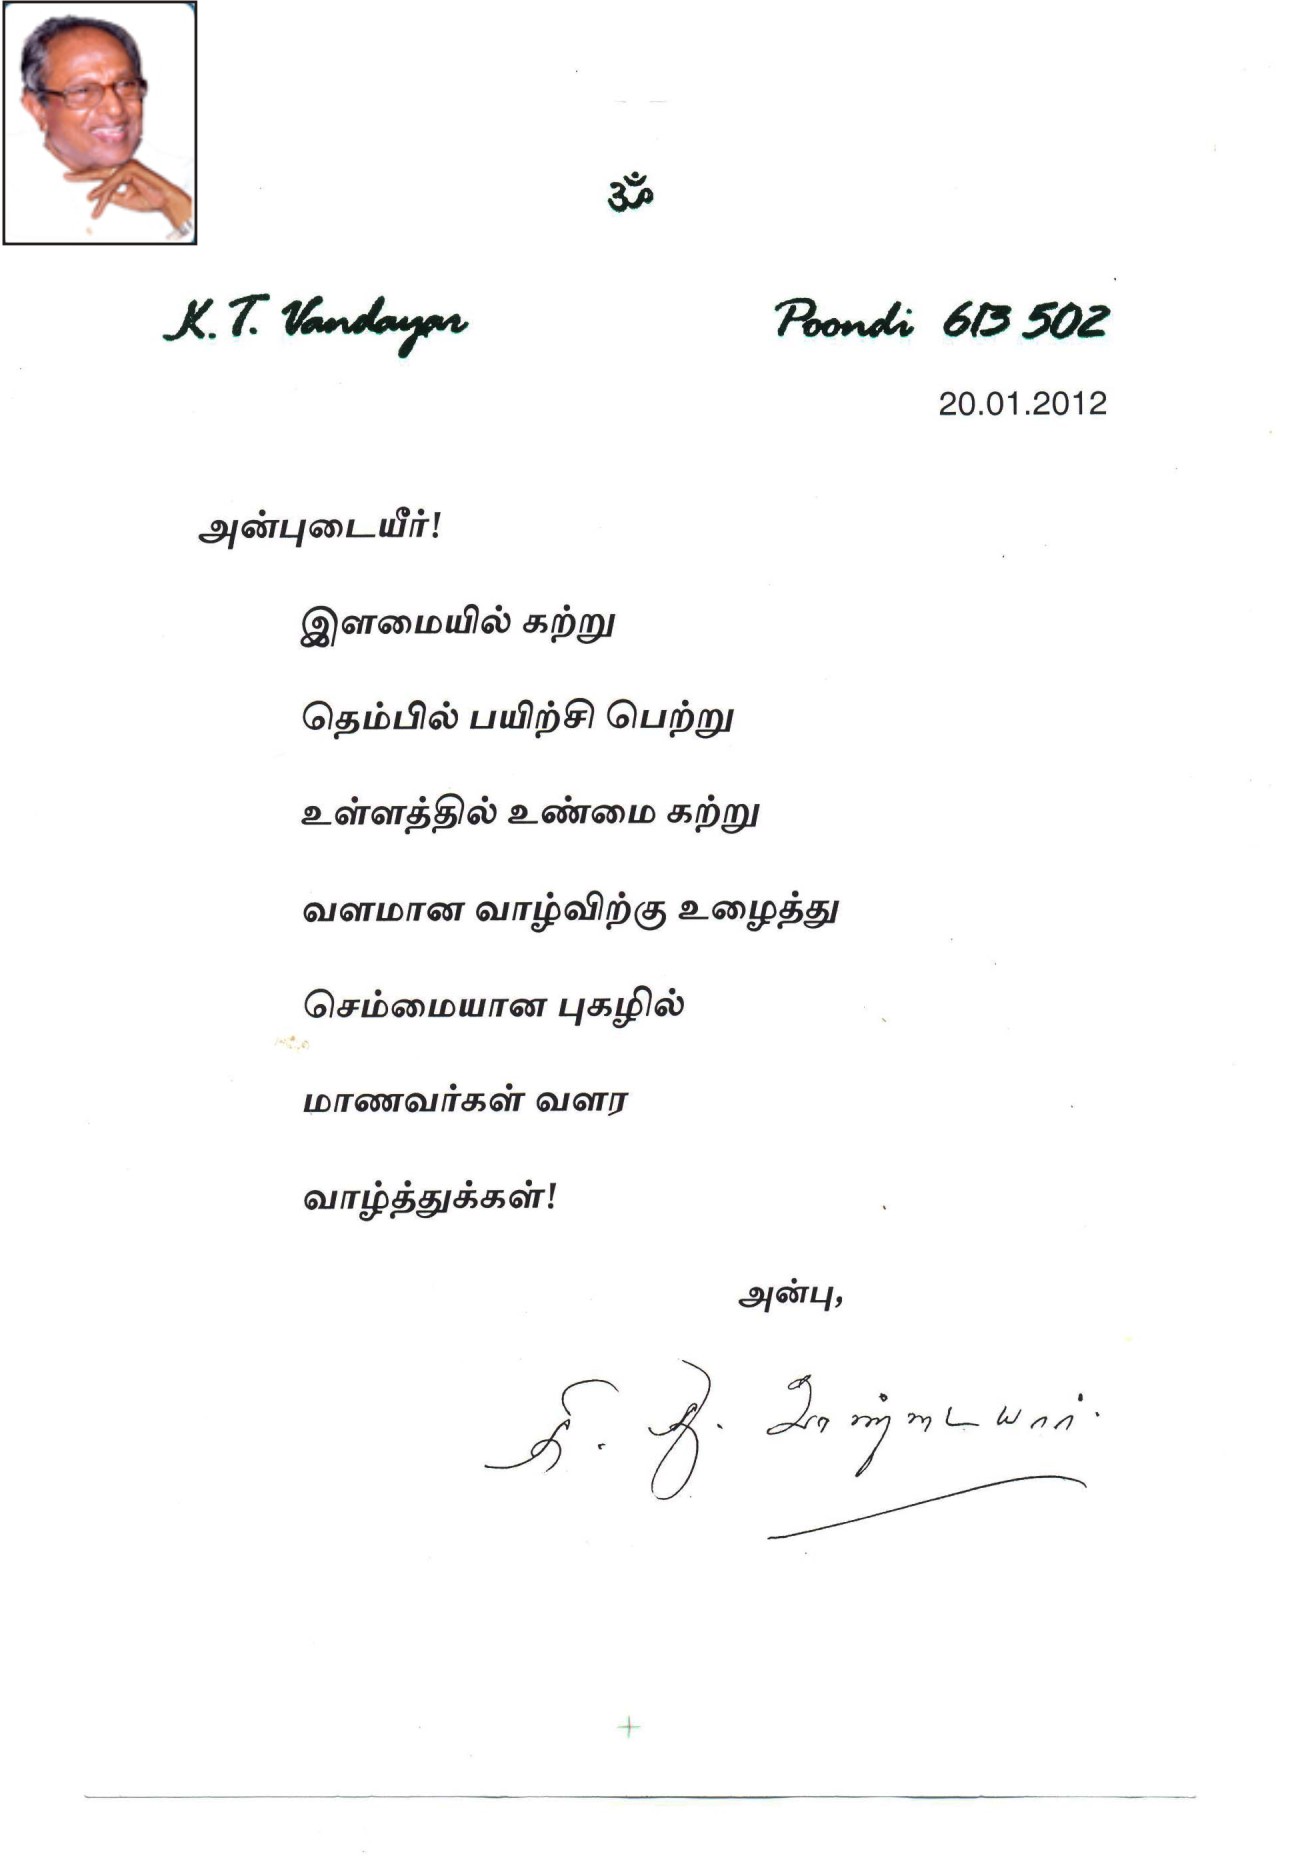 ॐ
K. T. Vandayar
Poondi 613 502
20.01.2012
அன்புடையீர்!
இளமையில் கற்று
தெம்பில் பயிற்சி பெற்று
உள்ளத்தில் உண்மை கற்று
வளமான வாழ்விற்கு உழைத்து
செம்மையான புகழில்
மாணவர்கள் வளர
வாழ்த்துக்கள்!
அன்பு,
கி. து. வாண்டையார்.